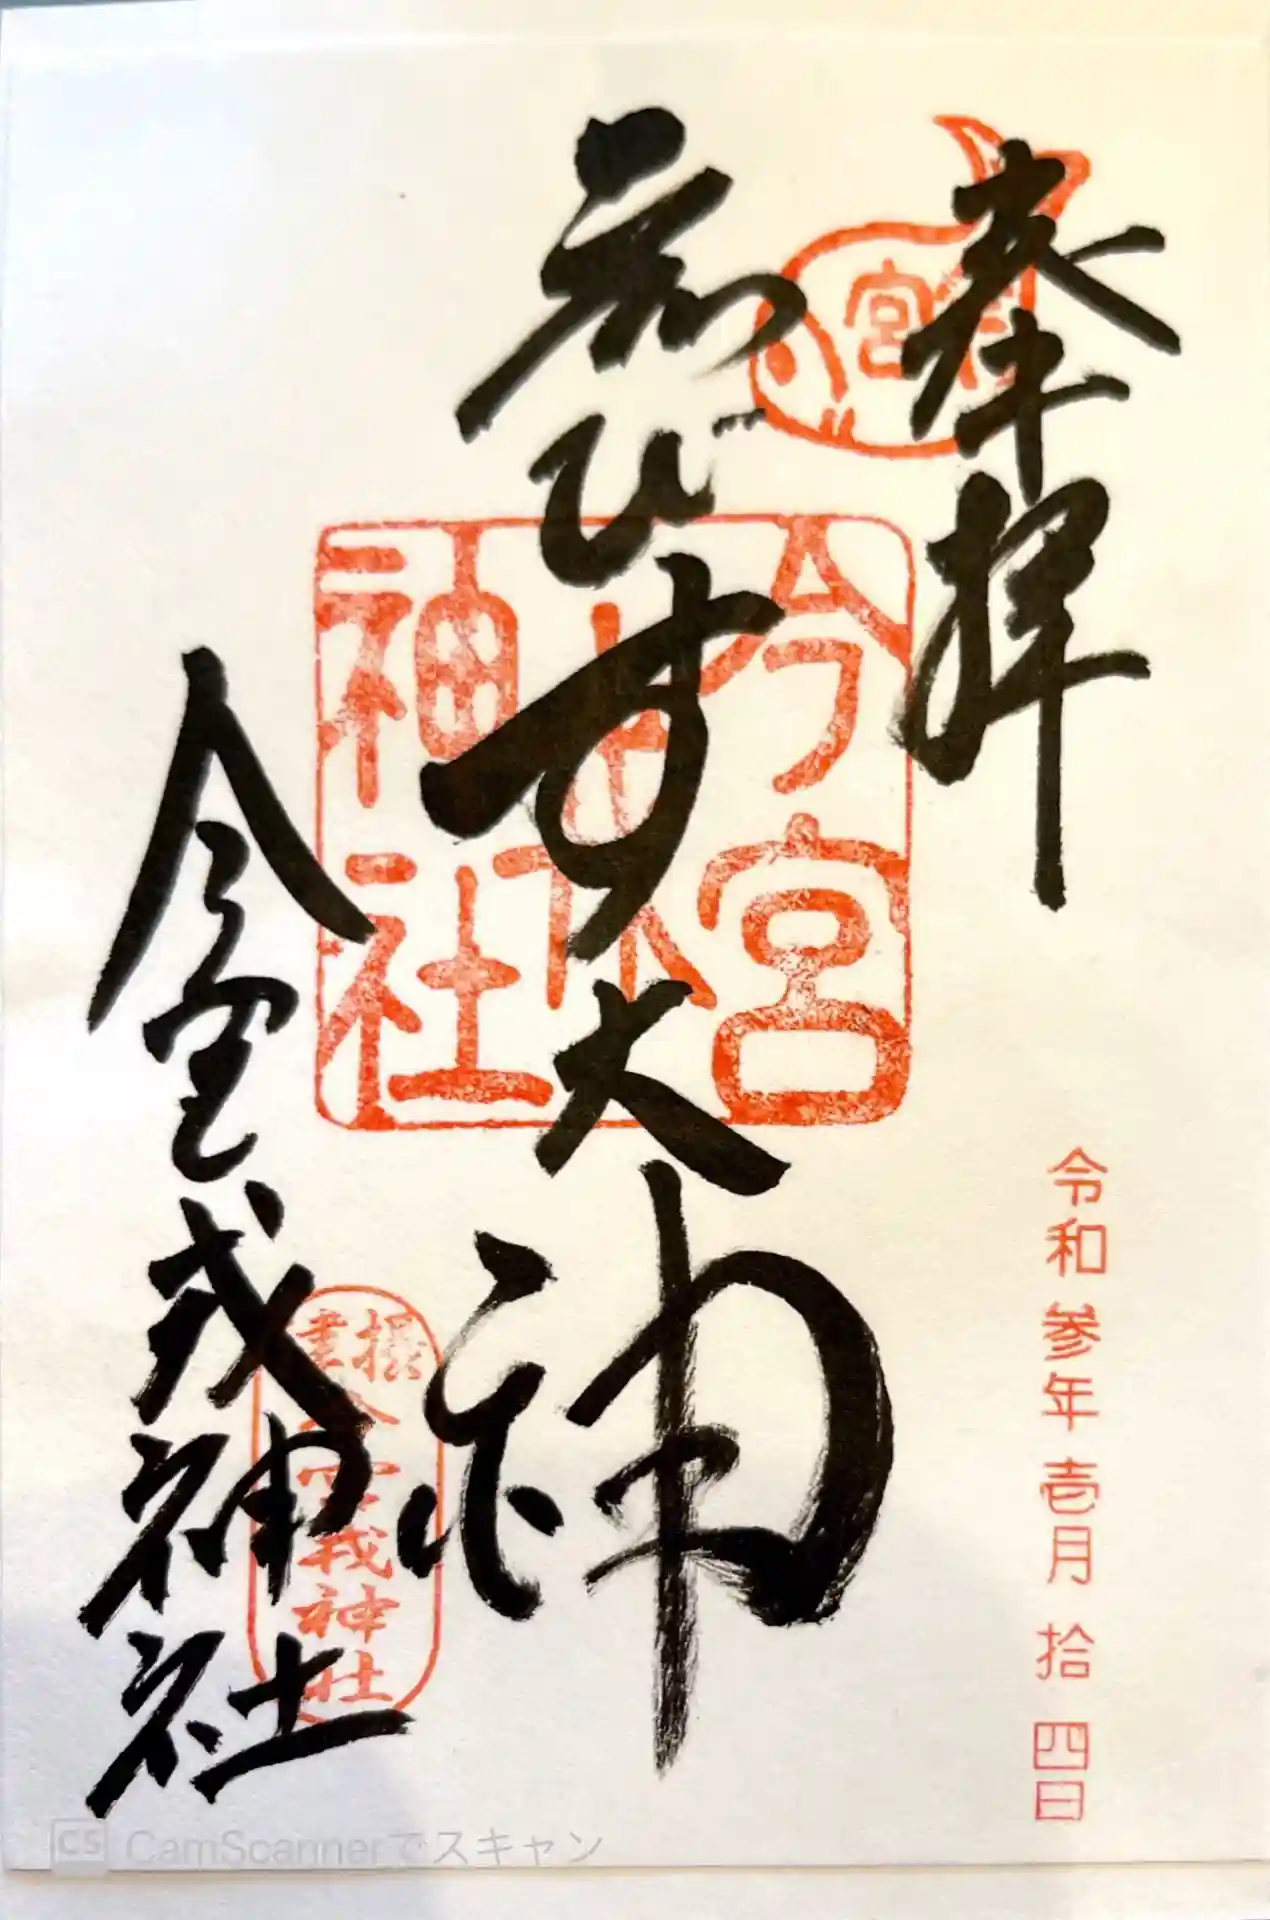 奉拝
ゑびす大神
今宮戎神社
宮
今宮
神社
今宮戎神社
令和参年壱月拾四日
CS CamScannerでスキャン